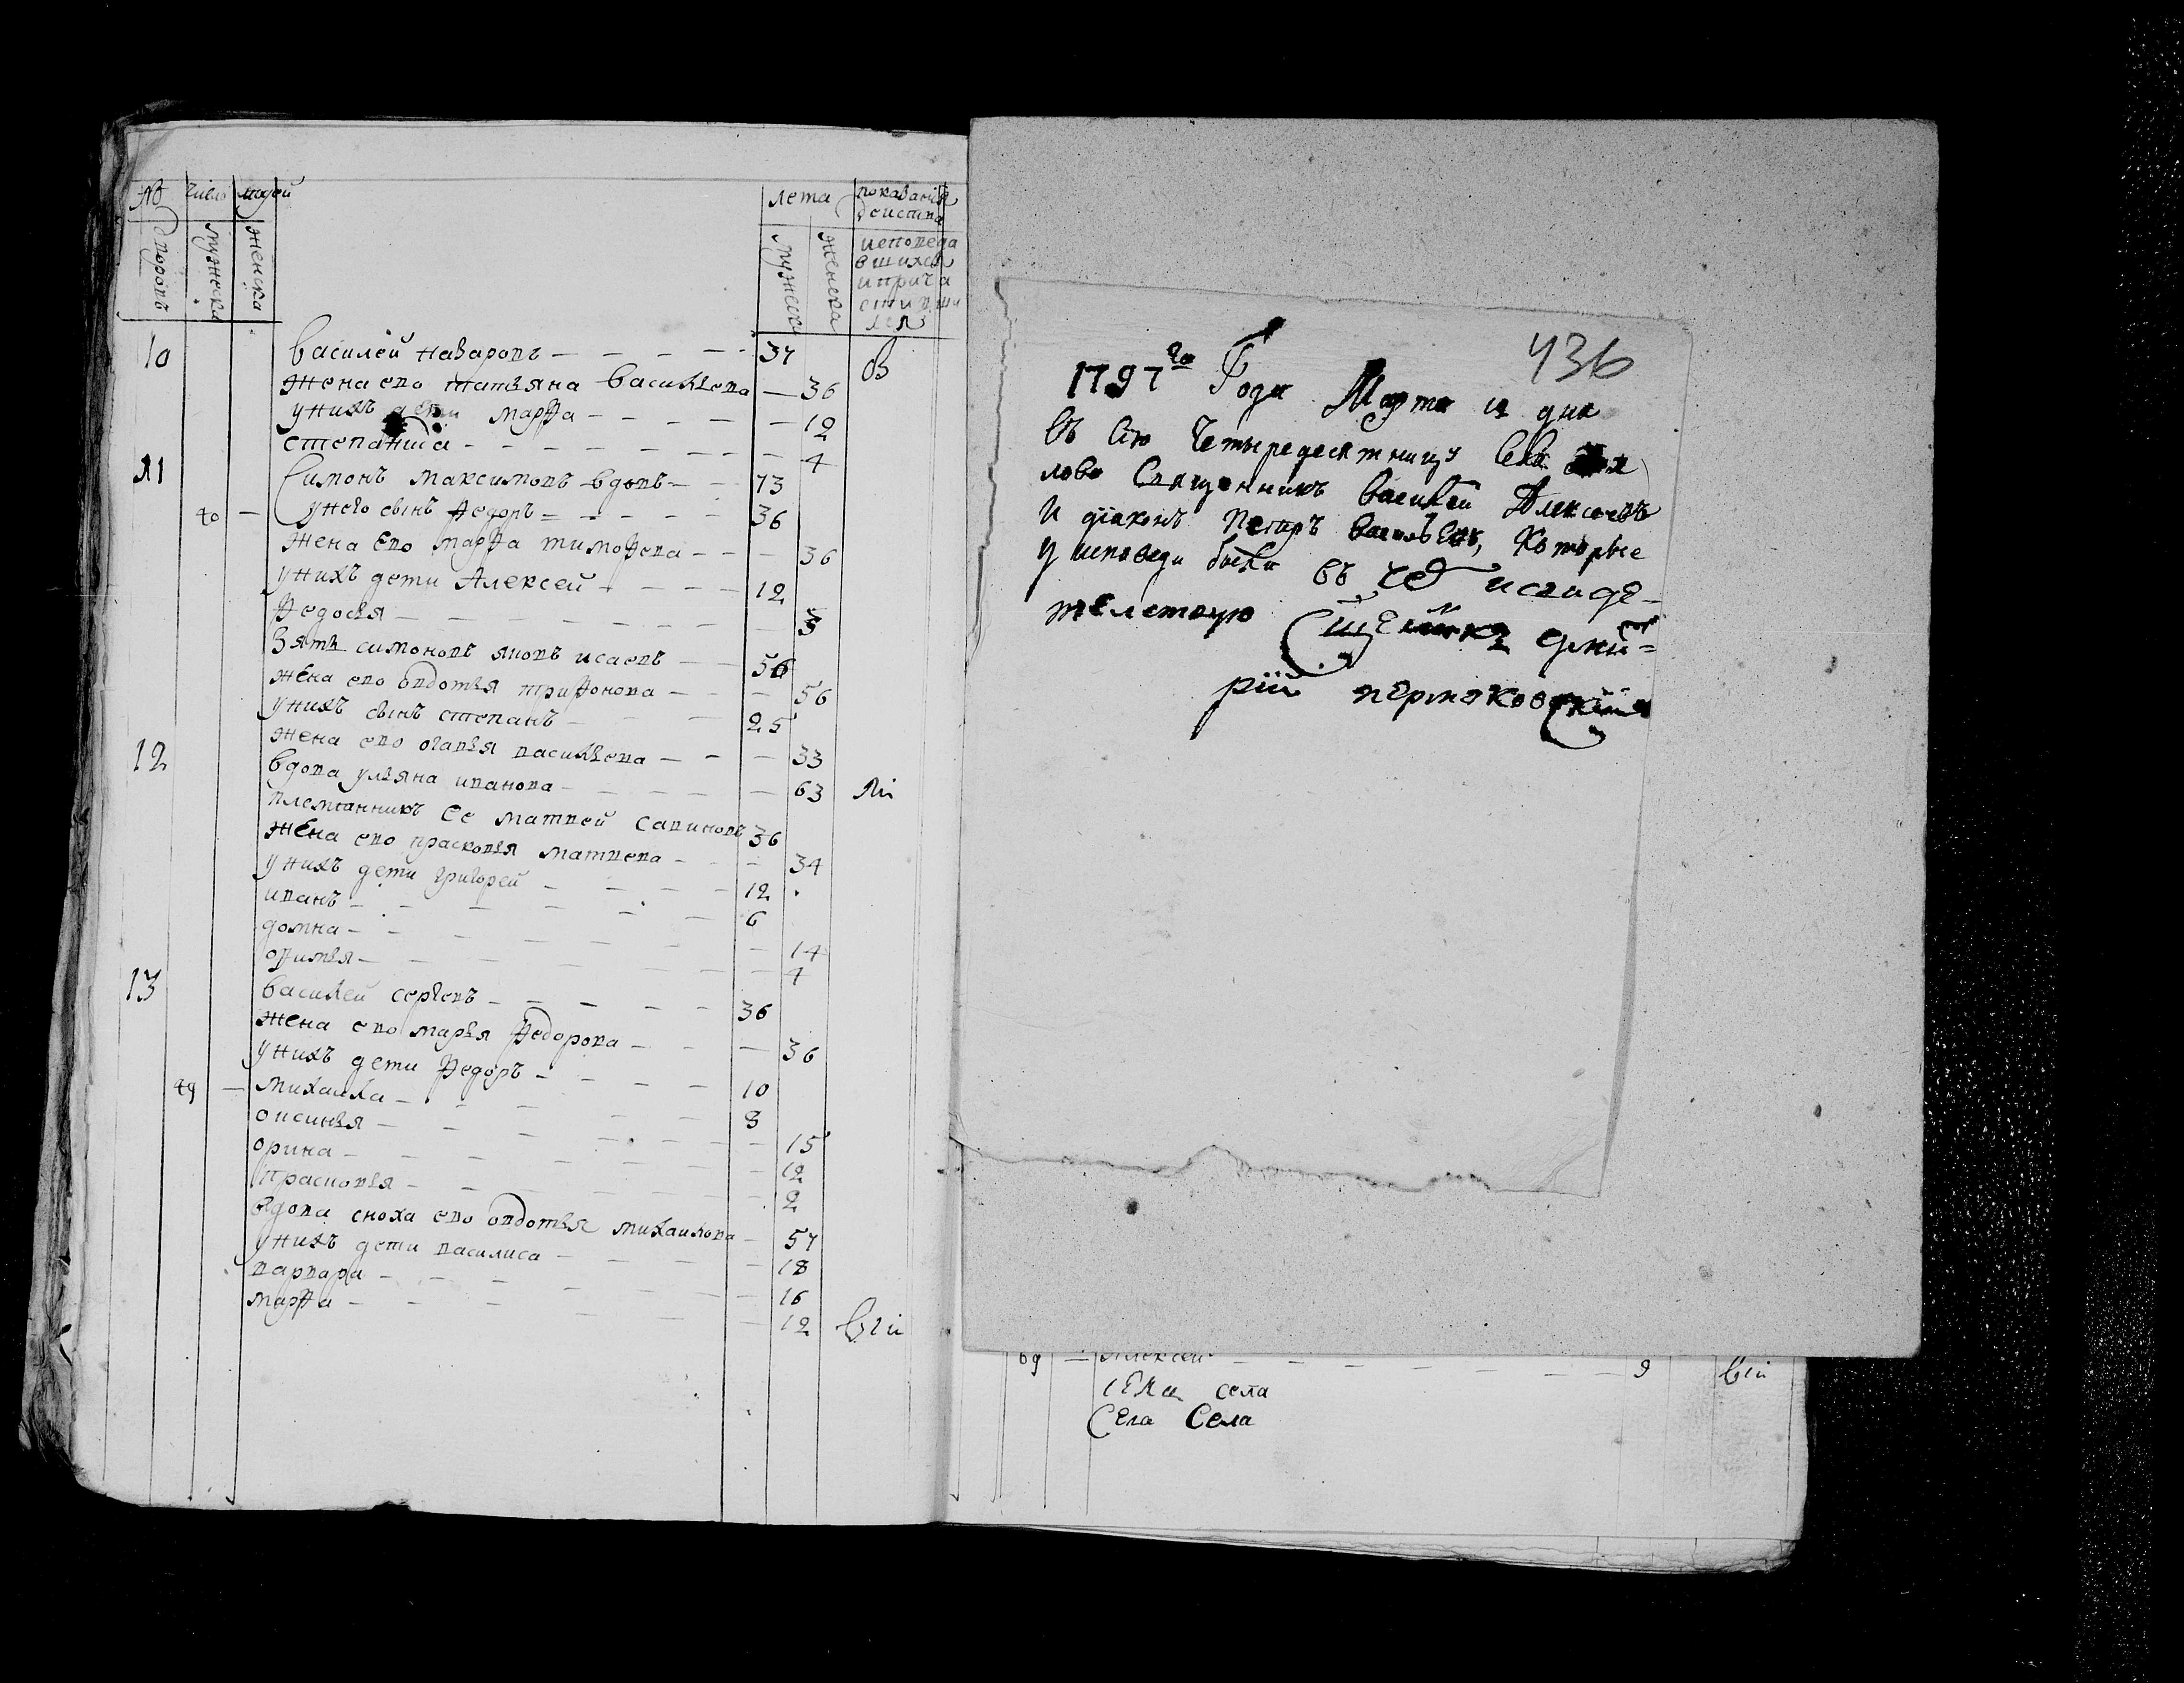 № числ людей
дворовъ
мужеска
женска
лета
мужеска
женска
показания
действа
исповеда
вшихся
и прича
стивши
хся
10 Василей назаровъ 37
жена ево татьяна васильева 36
у нихъ дети марфа 12
степанида 4
11 Симонъ максимовъ вдовъ 73
40 у него сынъ федоръ 36
жена ево марфа тимофева 36
у нихъ дети Алексей 12
федосья 3
Зять симоновъ яковъ исаевъ 56
жена ево овдотья трифонова 56
у нихъ сынъ степанъ 25
жена ево огафья васильева 33
12 вдова ульяна иванова 63
племянникъ ее матвей савиновъ 36
жена ево прасковья матвева 34
у нихъ дети григорей 12
иванъ 6
домна 14
офимья 4
13 Василей сергевъ 36
жена ево марья федорова 36
у нихъ дети федоръ 10
49 михаила 8
оксинья 15
орина 12
прасковья 2
вдова сноха ево овдотья михаилова 57
у нихъ дети василиса 18
варвара 16
марфа 12
436
1797го Года Марта и дня
въ сию Четыредесятницу села
лово Священникъ Василей Алексеевъ
и диаконъ Петръ Васильевъ, Которые
у исповеди были въ чемъ и свиде-
телствую Священникъ Дмит-
рий пермяковский
69 Алексей 9
села села
Села Села